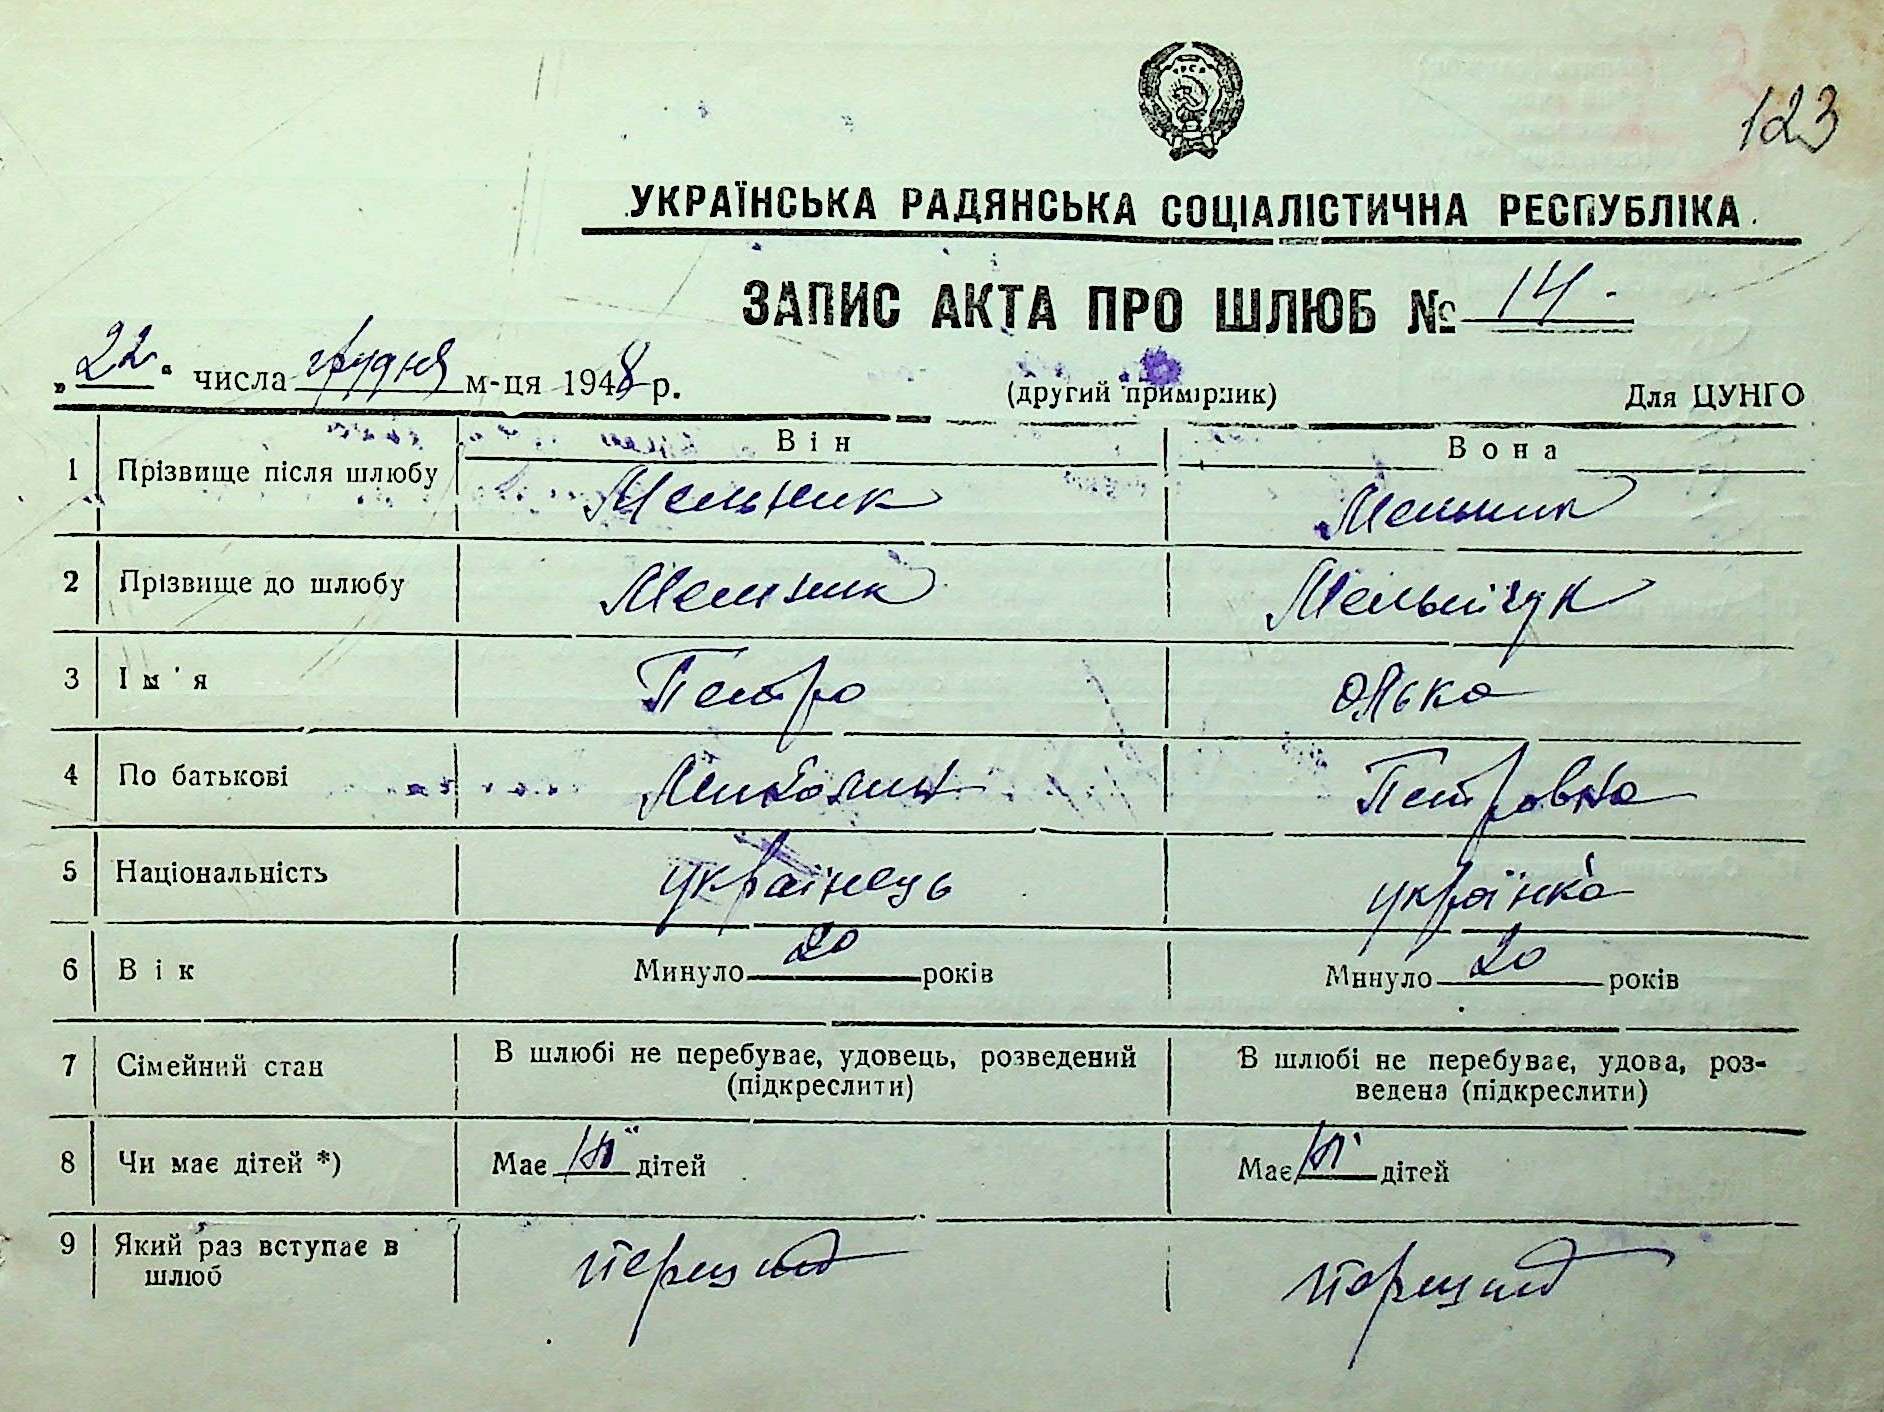 УРСР
123
УКРАЇНСЬКА РАДЯНСЬКА СОЦІАЛІСТИЧНА РЕСПУБЛІКА
ЗАПИС АКТА ПРО ШЛЮБ № 14
„22" числа грудня м-ця 1948 р. (другий примірник) Для ЦУНГО
Він Вона
1 Прізвище після шлюбу Мельник Мельник
2 Прізвище до шлюбу Мельник Мельничук
3 Ім'я Петро Олька
4 По батькові Петровна
5 Національність українець українка
6 Вік Минуло 20 років Минуло 20 років
7 Сімейний стан В шлюбі не перебуває, удовець, розведений В шлюбі не перебуває, удова, роз-
(підкреслити) ведена (підкреслити)
8 Чи має дітей *) Має ні дітей Має ні дітей
9 Який раз вступає в
шлюб перший перший